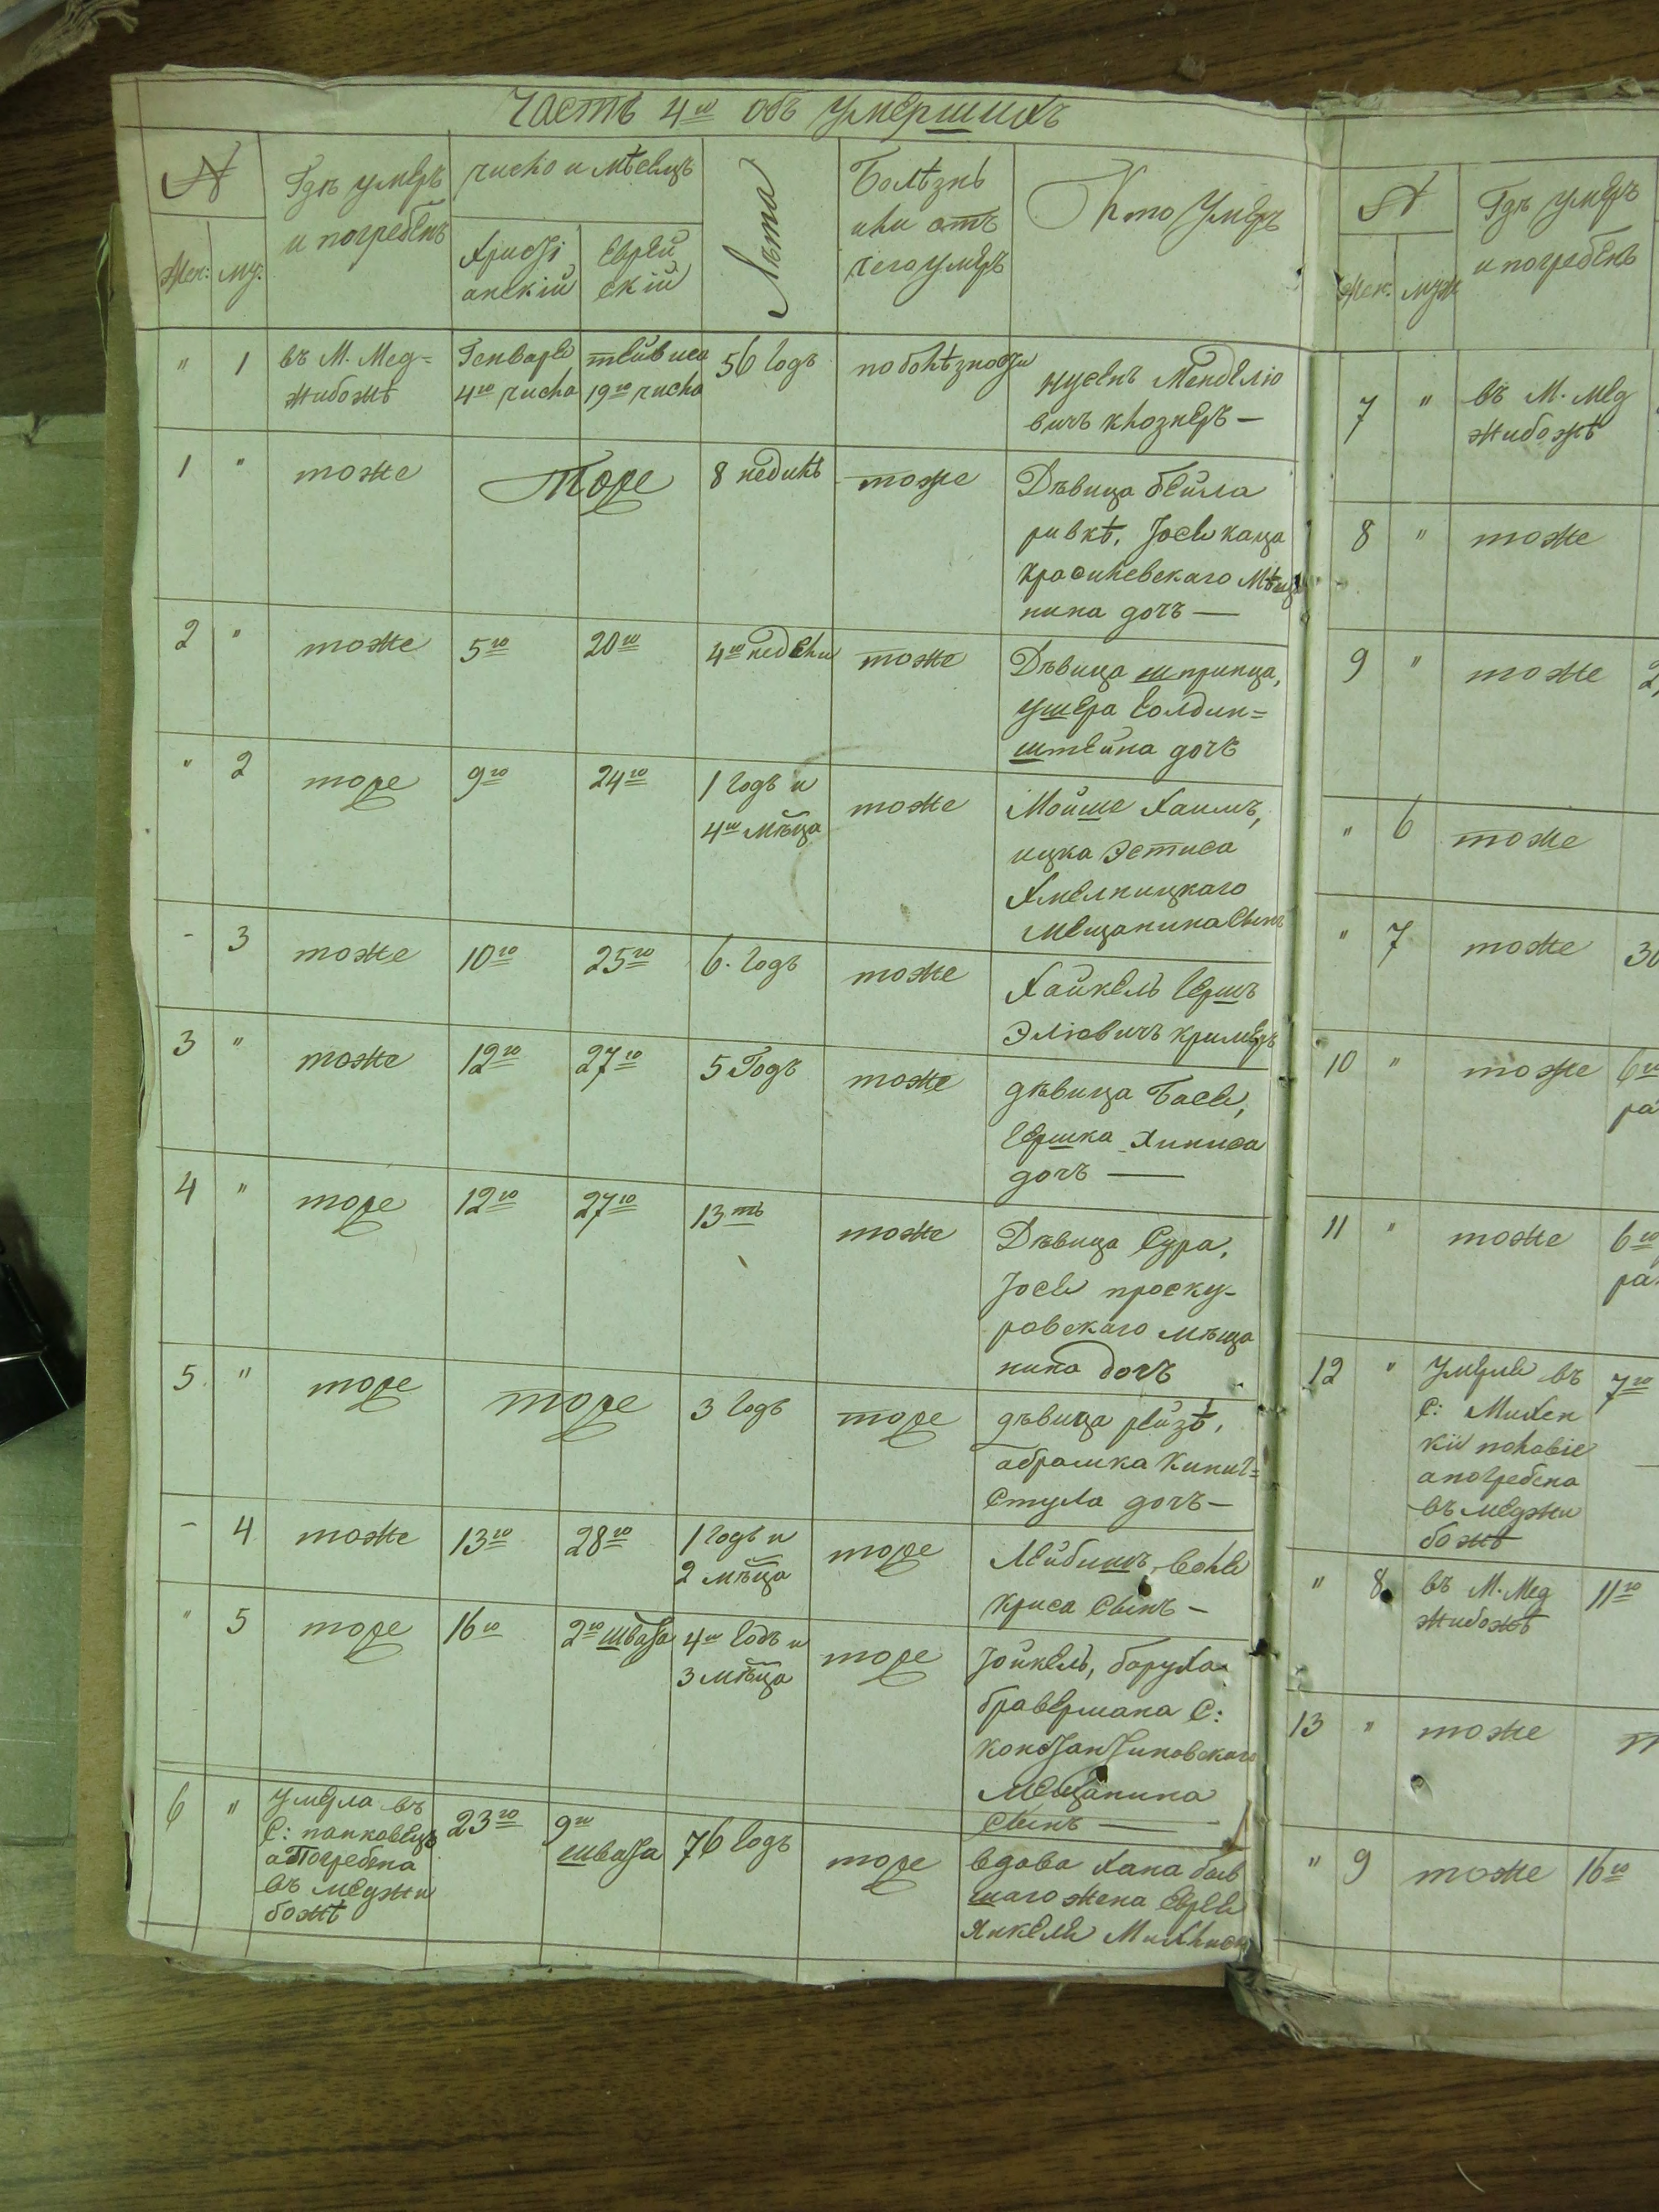 Часть 4ю объ умершихъ
№
Жен: му:
Гдѣ умеръ
и погребенъ
число и мѣсецъ
Христі
анскій
Еврей
скій
Лѣта
Болѣзнь
или отъ
чего умеръ
Кто Умеръ
" 1 въ М. Мед=
жибожѣ
Генваря
4го числа
тейвиса
19го числа
56 годъ
по болѣзности
Менделіо
вичъ Клознеръ —
1 " тоже Тоже 8 недилѣ тоже Дѣвица Бейла
ривкѣ, Іося каца
Красилевскаго Мѣща
нина дочъ —
2 " тоже 5го 20го 4ю недели тоже Дѣвица шпринца,
ушера Голдин=
штейна дочъ
" 2 тоже 9го 24го 1 годъ и
4ю мѣца
тоже Мойше Хаимъ,
ицка Эстиса
Хмелницкаго
мещанина сынъ
- 3 тоже 10го 25го 6. годъ тоже Хайкель Гершъ
Элювичъ Кримеръ
3 " тоже 12го 27го 5 Годъ тоже дѣвица Бася,
Гершка Хиниса
дочъ —
4 " тоже 12го 27го 13ть тоже Дѣвица Сура,
Іося проску-
ровскаго мѣща
нина дочъ
5 " тоже тоже 3 годъ тоже дѣвица рейзѣ,
абрамка Киниг=
стула дочъ —
- 4 тоже 13го 28го 1 годъ и
2 мѣца
тоже Лейбишъ, Воля
Криса Сынъ —
" 5 тоже 16го 2го швата 4ю годъ и
3 мѣца
тоже Іойкель, баруха
бравермана С:
Константиновскаго
Мещанина
Сынъ —
6 " умерла въ
С: папковецъ
а погребена
въ меджи
божѣ
23го 9го
швата
76 годъ тоже вдова Хана быв
шаго жена Еврея
Янкеля
№
Жен. муж
Гдѣ умеръ
и погребенъ
7 " въ М. Мед
жибожѣ
8 " тоже
9 " тоже 2
" 6 тоже
" 7 тоже 30
10 " тоже 6го
ра
11 " тоже 6го
ра
12 " умерла въ 7го
С:
а погребена
въ меджи
божѣ
" 8 въ М. Мед 11го
жибожѣ
13 " тоже
" 9 тоже 16го